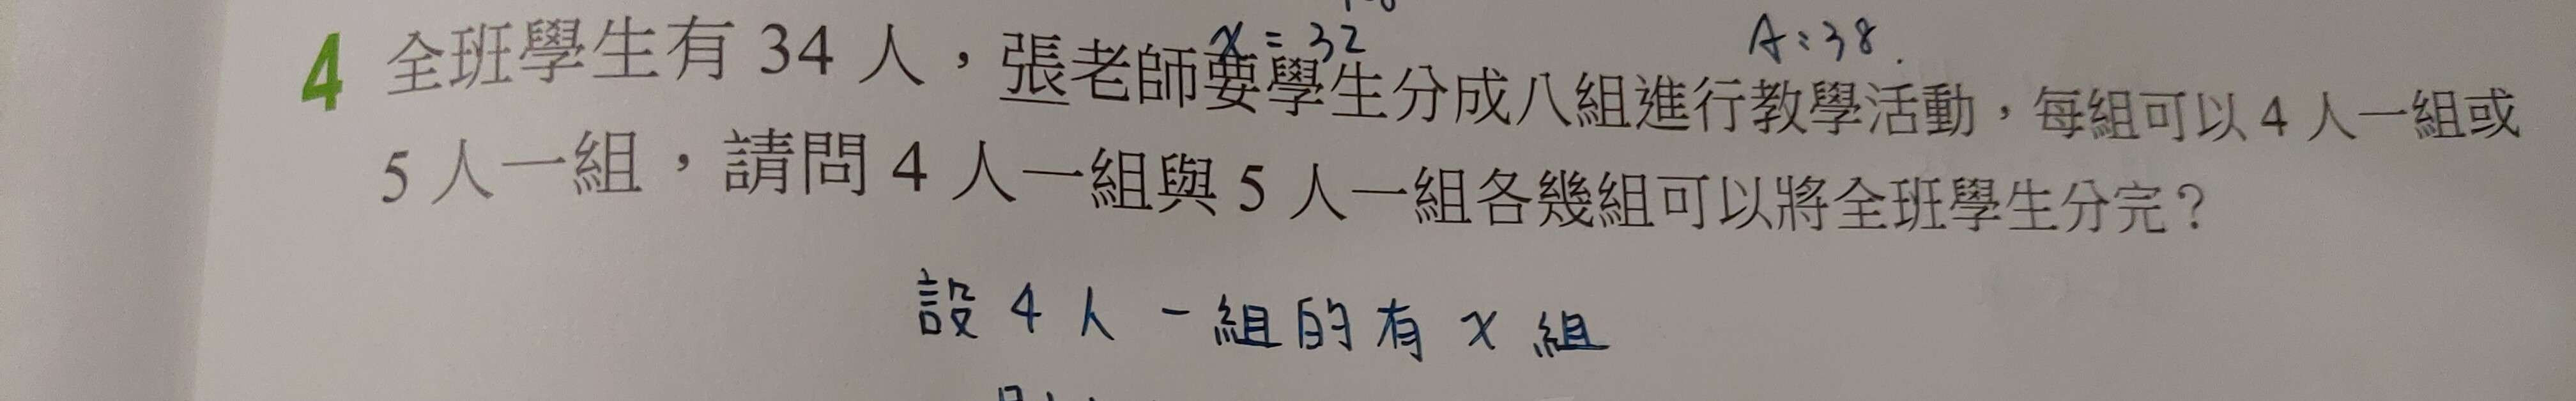 x = 32
A：38.
4 全班學生有 34 人，張老師要學生分成八組進行教學活動，每組可以 4 人一組或
5 人一組，請問 4 人一組與 5 人一組各幾組可以將全班學生分完？
設 4 人 一組的有 x 組